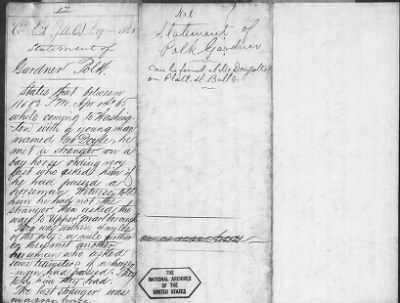 17
Statement of
Gardner Polk.
States that between
11 & 12 P.M. Apr 14 65
while coming to Washing-
ton with a young man
named Geo Doyle, he
met a stranger on a
bay horse riding very
fast who asked him if
he had passed a
horseman. Witness told
him he had not. The
stranger then asked the
way to Upper Marlborough
This was within
of the city: a mile further
on they met another
horseman who asked
some
man, had passed: They
told him they had.
The last stranger was
on a roan horse.
No 1
Statement of
Polk Gardner
can be found at Mr Dougall's
on Platt. St. Balto
THE
NATIONAL ARCHIVES
OF THE
UNITED STATES